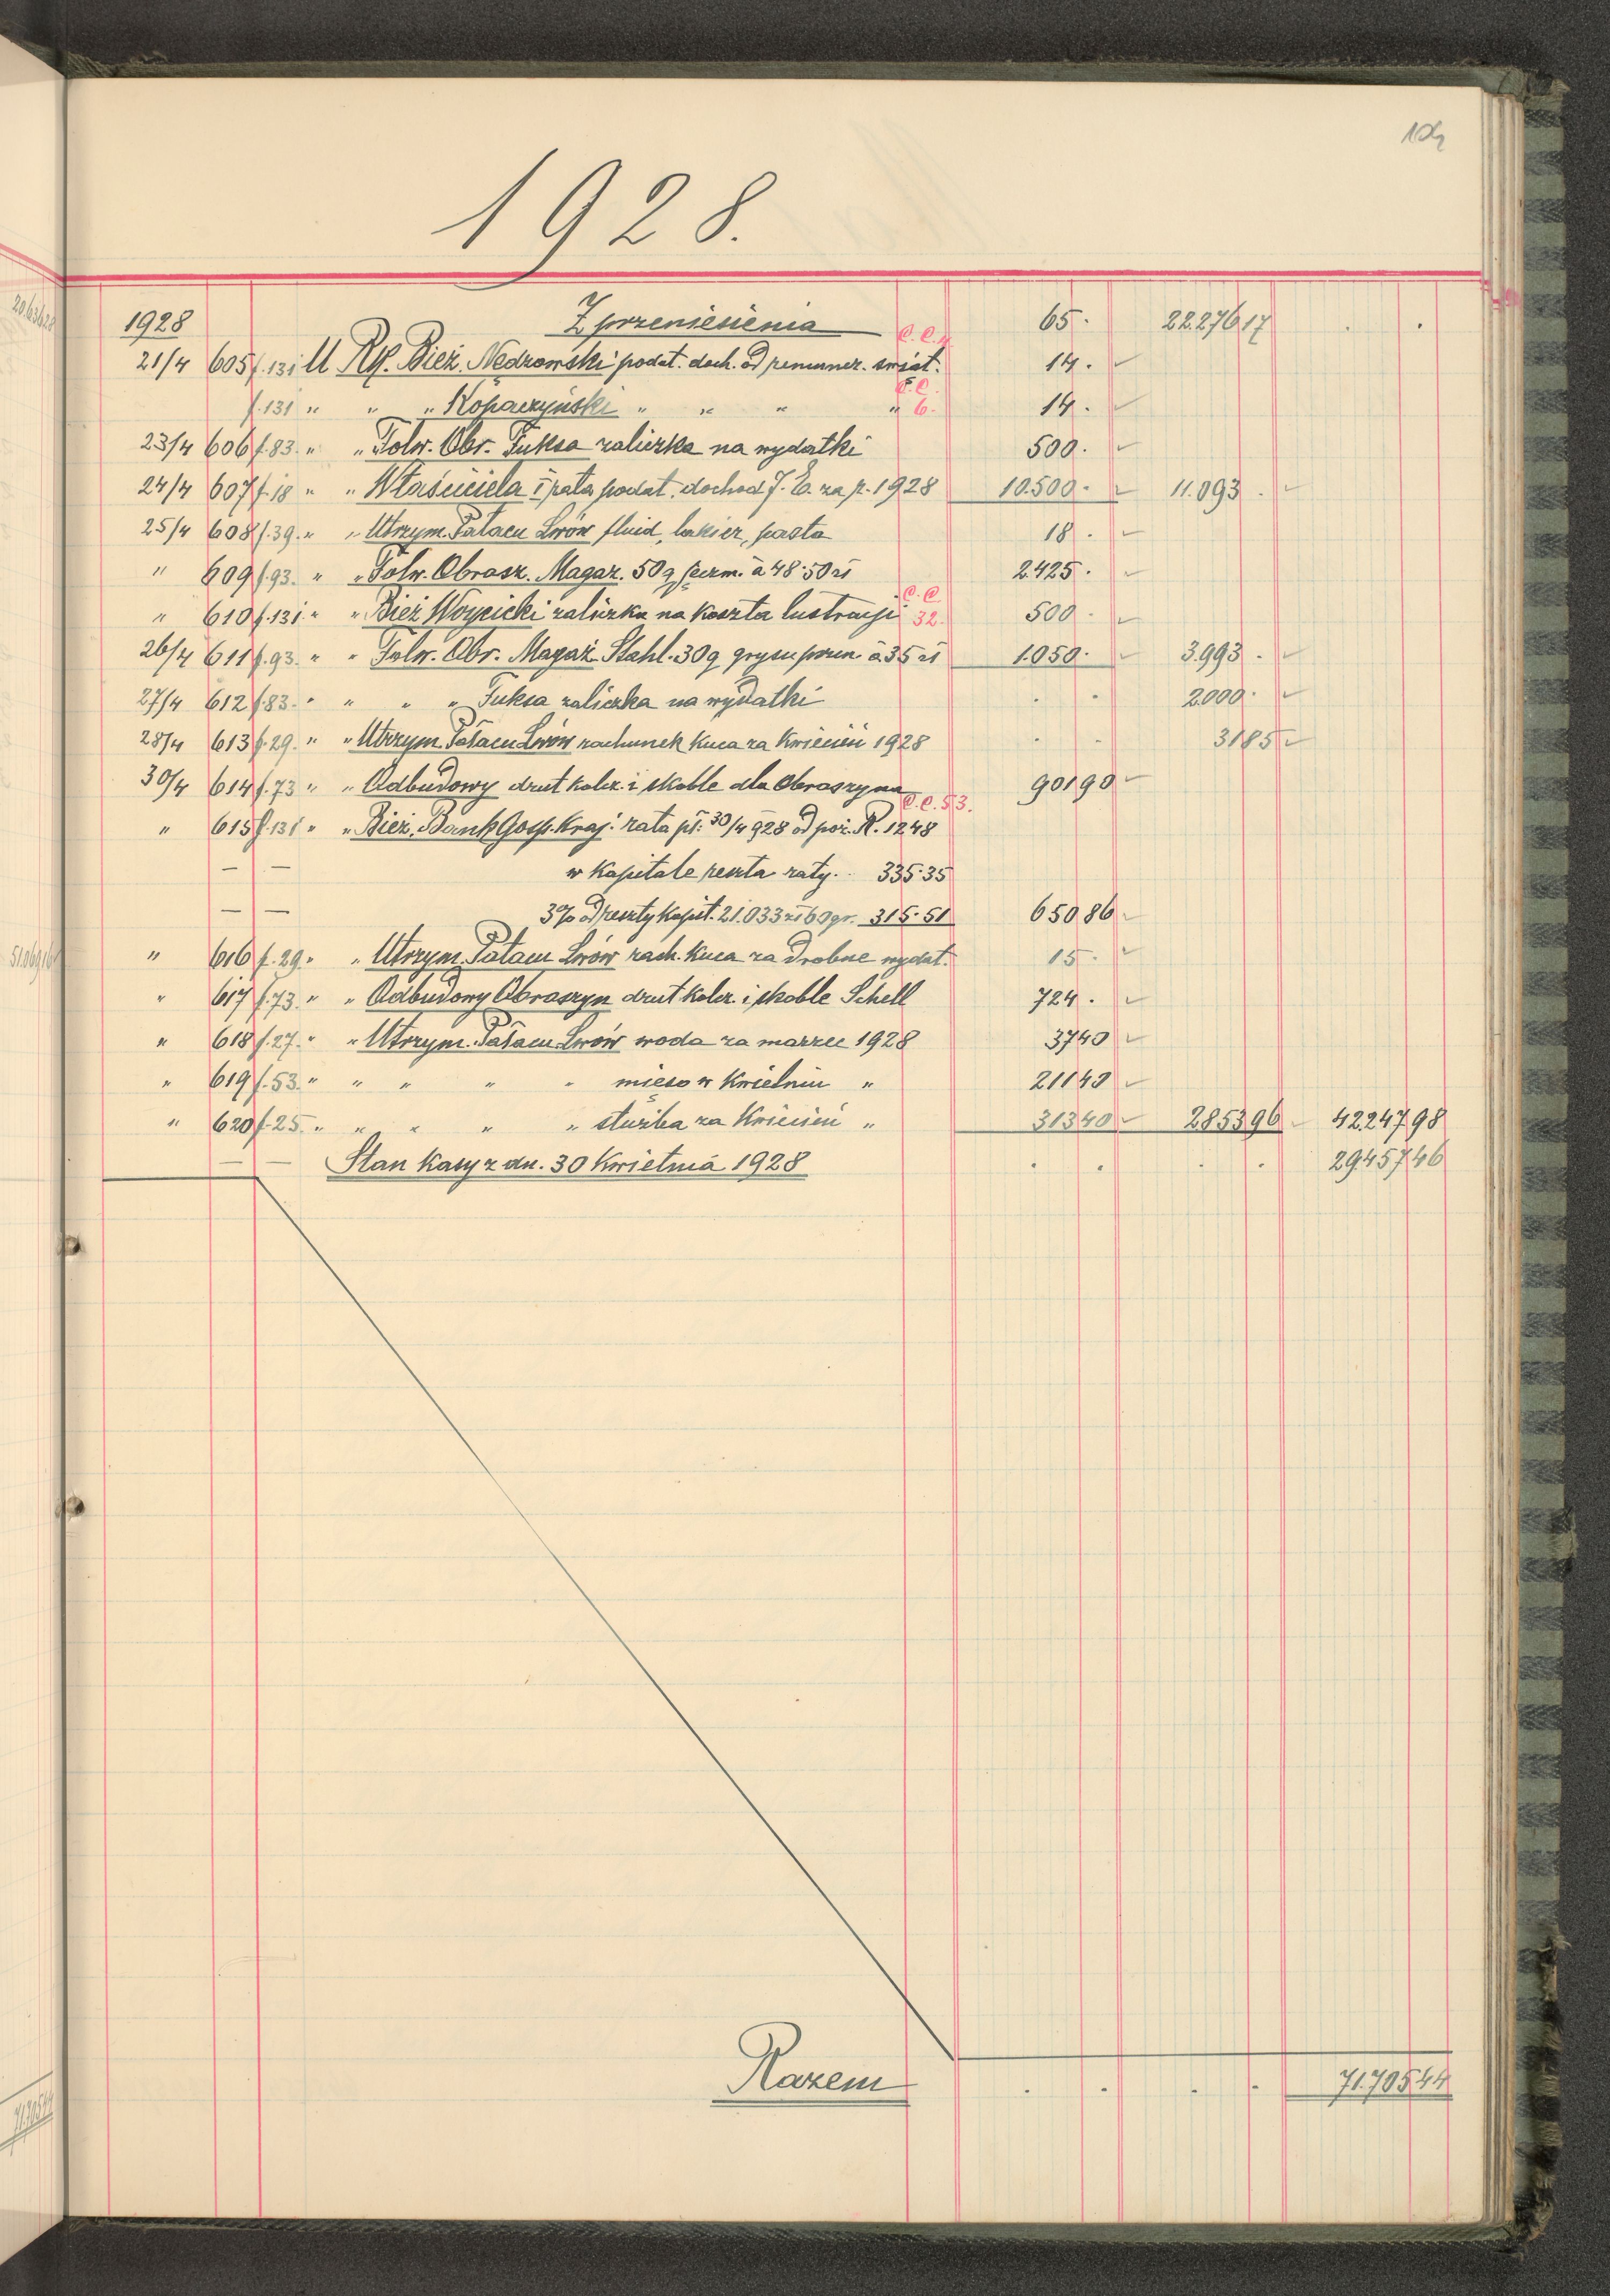 1928.
1928 Z przeniesienia 65. 22.276 17 . .
21/4 605 f. 131 U Rḱ. Bież. Nedzowski podat. doch. od remuner. świąt. C.C. 14.
f. 131 " " " Kopaczyński " " " " C.C. 6. 14.
23/4 606 f. 83. " " Folw. Obr. Fuksa zaliczka na wydatki 500.
24/4 607 f. 18 " " Właściciela I rata podat. dochod J. E. za r. 1928 10.500. 11.093 .
25/4 608 f. 39. " " Utrzym. Pałacu Lwów fluid, lakier, pasta 18.
" 609 f. 93. " " Folw. Obrosz. Magaz. 50 q à 48.50 zł 2.425.
" 610 f. 131 " " Bież Woycicki zaliczka na koszta lustracji C.C. 32. 500.
26/4 611 f. 93. " " Folw. Obr. Magaż Stahl. 30 q grysu pszen à 35 zł 1.050. 3.993 .
27/4 612 f. 83. " " " " Fuksa zaliczka na wydatki . . 2.000.
28/4 613 f. 29. " " Utrzym. Pałacu Lwów rachunek Kuca za Kwiecień 1928 . . 31 85
30/4 614 f. 73 " " Odbudowy drut kolcz. i skoble dla Obroszyna 901 90
" 615 f. 131 " " Bież. Bank Gosp. Kraj. rata pł. 30/4 928 od poż. R. 1248 C.C. 53.
— — w kapitale reszta raty.. 335.35
— — 3% od reszty kapit. 21.033 zł 60 gr. 315.51 650 86
" 616 f. 29. " " Utrzym. Pałacu Lwów rach. Kuca za drobne wydat. 15.
" 617 f. 73. " " Odbudowy Obroszyn drut kolcz. i skoble Schell 724.
" 618 f. 27. " " Utrzym. Pałacu Lwów woda za marzec 1928 37 40
" 619 f. 53. " " " " " mięso w Kwietniu " 211 40
" 620 f. 25. " " " " " służba za Kwiecień " 313 40 2.853 96 42.247 98
— — Stan kasy z dn. 30 Kwietnia 1928 . . . . 29.457 46
Razem . . . . 71.705 44